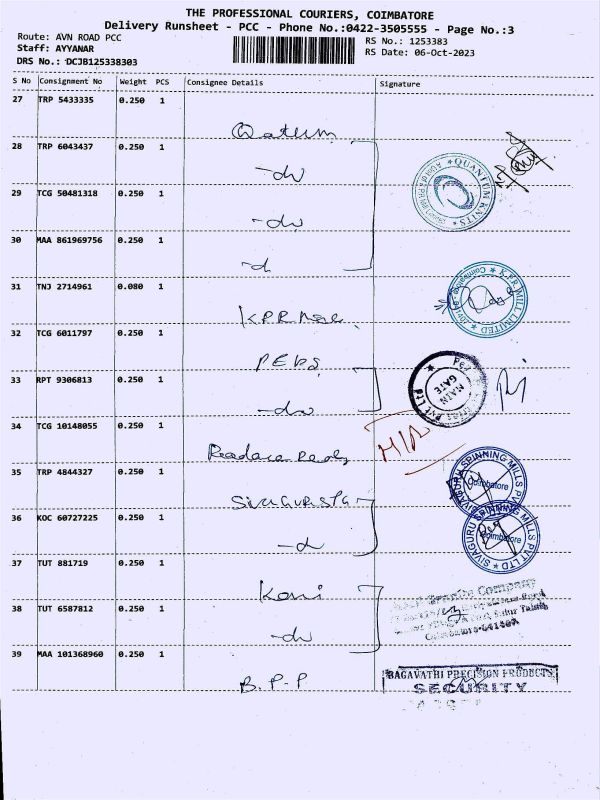 THE PROFESSIONAL COURIERS, COIMBATORE
Delivery Runsheet - PCC - Phone No.:0422-3505555 - Page No.:3
Route: AVN ROAD PCC
Staff: AYYANAR
DRS No.: DCJB125338303
RS No.: 1253383
RS Date: 06-Oct-2023
S No Consignment No Weight PCS Consignee Details Signature
27 TRP 5433335 0.250 1
28 TRP 6043437 0.250 1
-do
QUANTUM KNITS
29 TCG 50481318 0.250 1
-do
30 MAA 861969756 0.250 1
-d
31 TNJ 2714961 0.080 1
K.P.R
K.P.R. MILL LIMITED
Coimbatore
32 TCG 6011797 0.250 1
PEBS
33 RPT 9306813 0.250 1
-do
MAIN GATE
PVT LTD
34 TCG 10148055 0.250 1
35 TRP 4844327 0.250 1
SIVAGURU SPINNING MILLS PVT
Coimbatore
36 KOC 60727225 0.250 1
-d
SIVAGURU SPINNING MILLS PVT LTD
Coimbatore
37 TUT 881719 0.250 1
38 TUT 6587812 0.250 1
-do
Company
Sulur Taluk
Coimbatore
39 MAA 101368960 0.250 1
B.P.P
BAGAVATHI PRECISION PRODUCTS
SECURITY